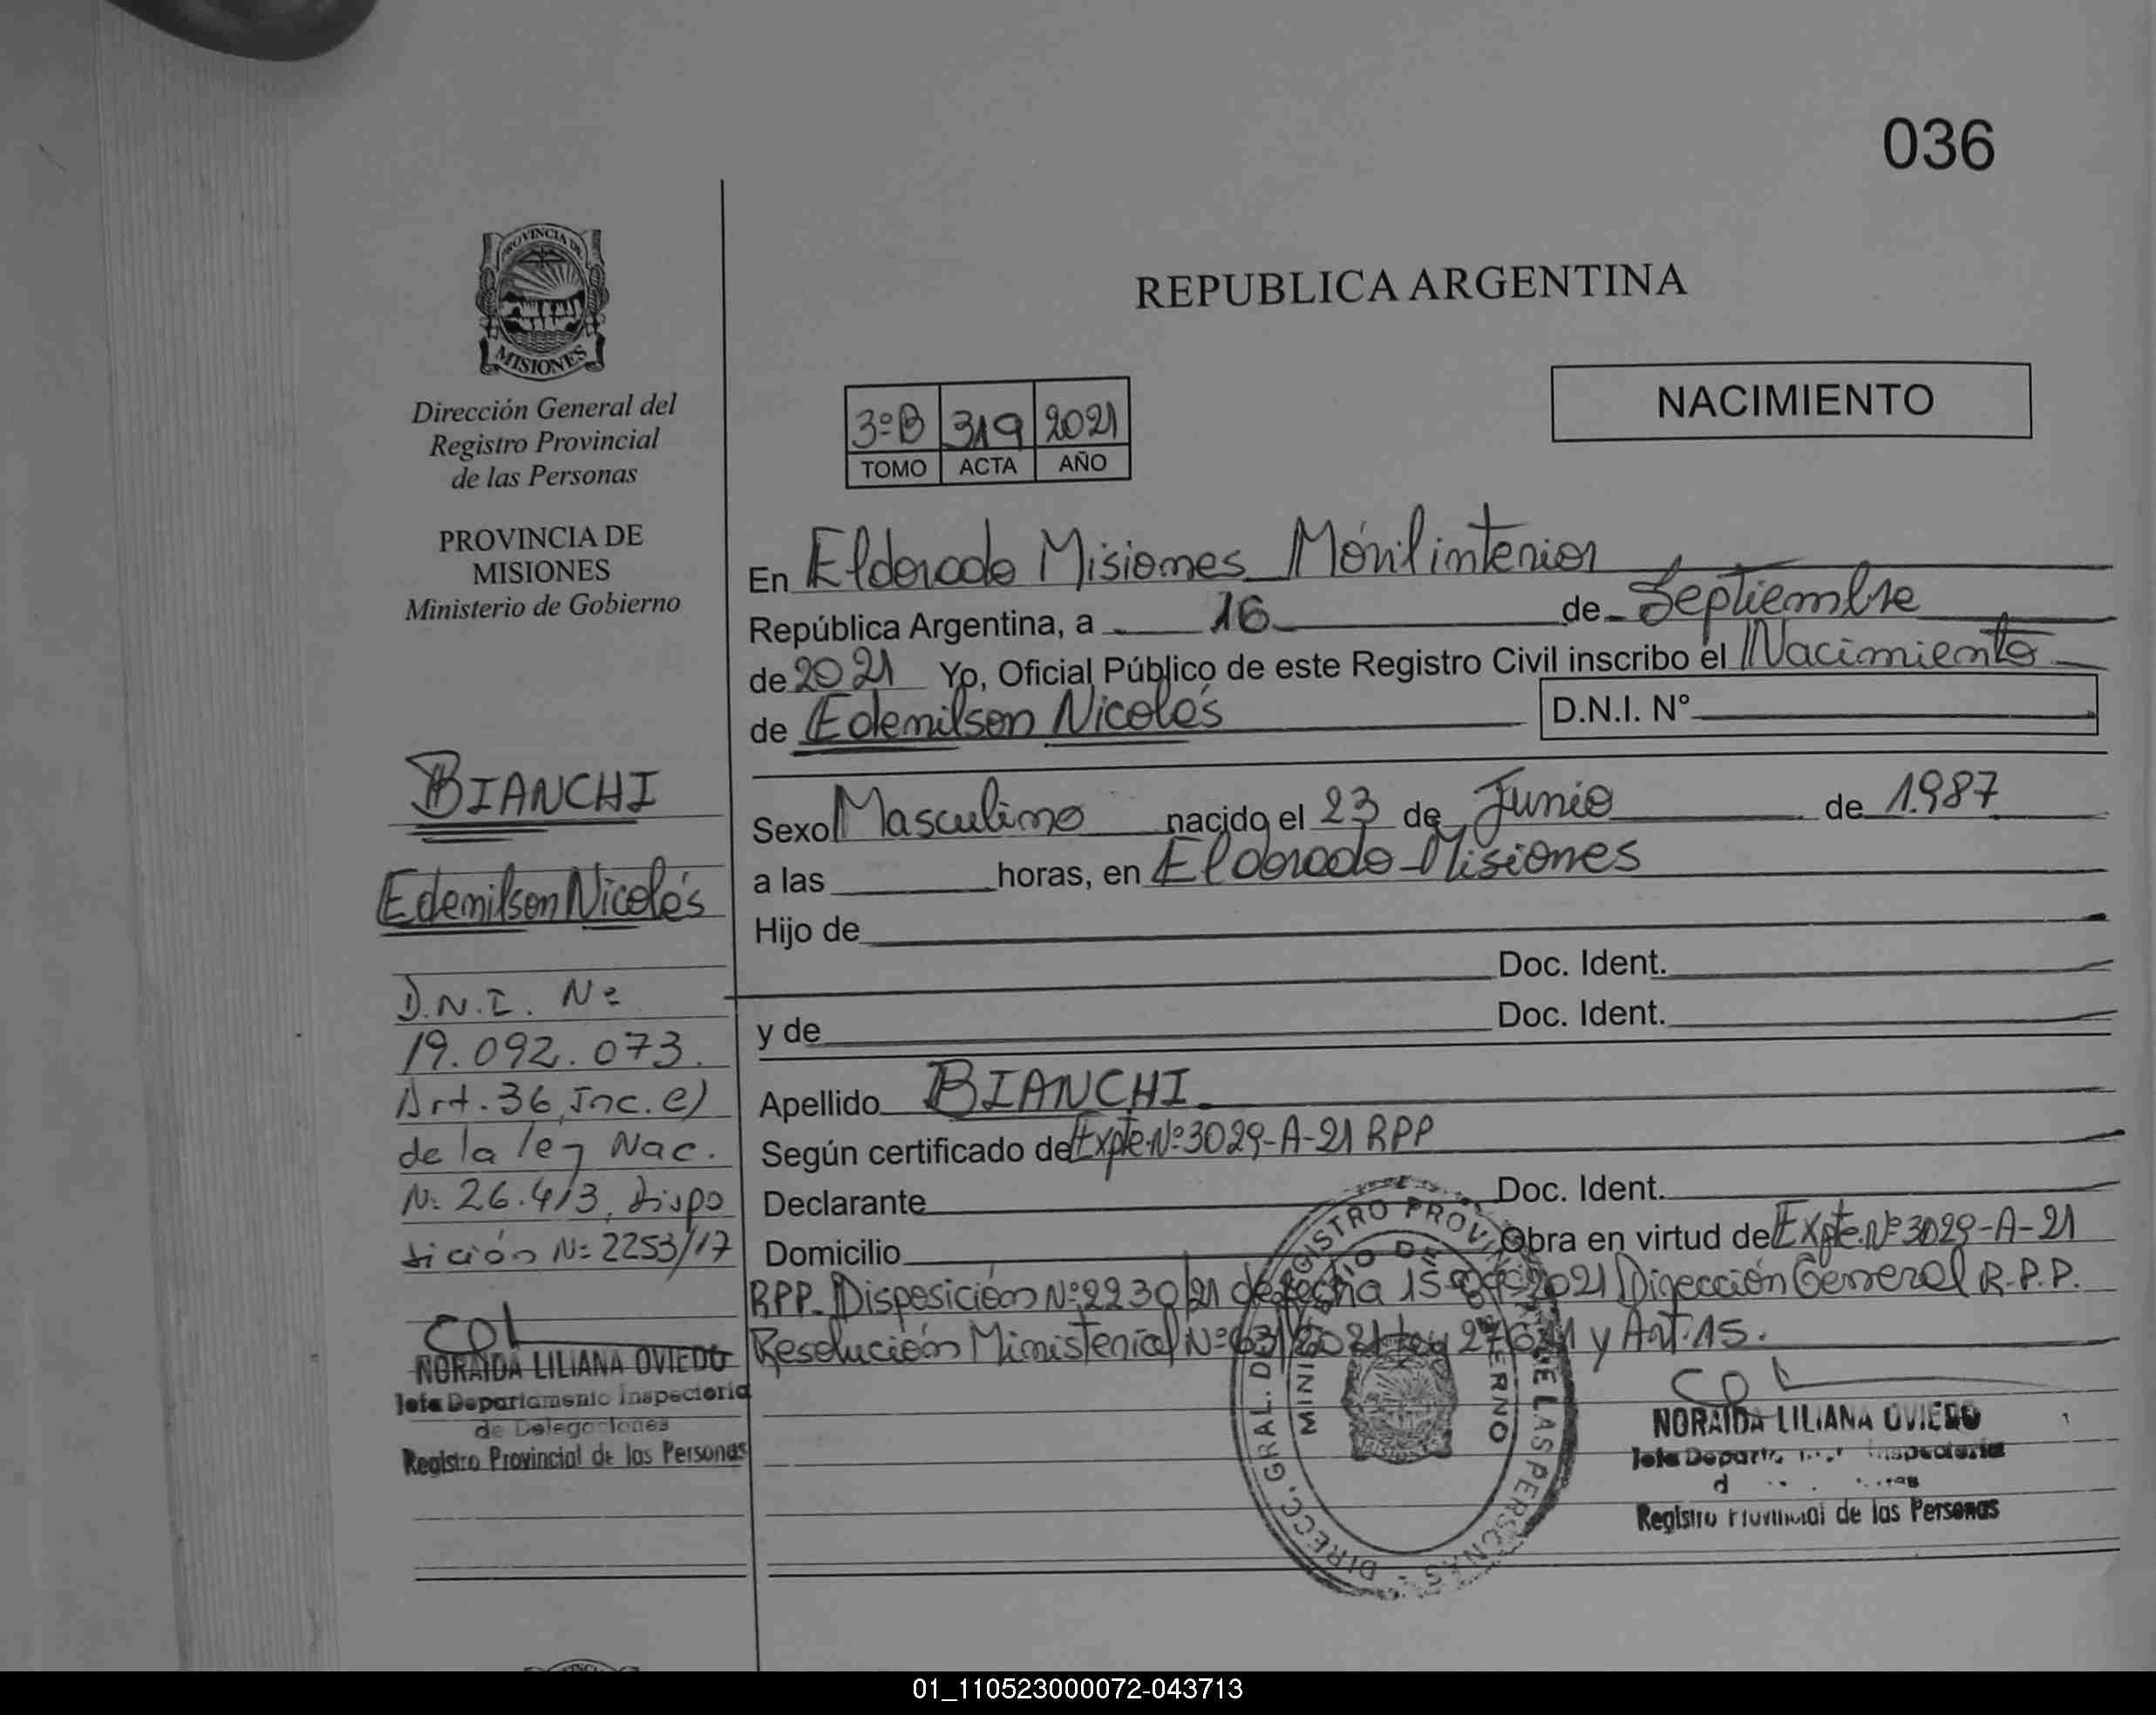 036
PROVINCIA DE
MISIONES
Dirección General del
Registro Provincial
de las Personas
PROVINCIA DE
MISIONES
Ministerio de Gobierno
BIANCHI
Edemilson Nicolás
D.N.I. Nº
19.092.073.
Art. 36, Inc. e)
de la ley Nac.
Nº 26.413, Dispo
sición Nº 2253/17
NORAIDA LILIANA OVIEDO
Jefa Departamento Inspectoria
de Delegaciones
Registro Provincial de las Personas
REPUBLICA ARGENTINA
NACIMIENTO
3ºB 319 2021
TOMO ACTA AÑO
En Eldorado Misiones Móvil interior
República Argentina, a 16 de Septiembre
de 2021 Yo, Oficial Público de este Registro Civil inscribo el Nacimiento
de Edemilson Nicolás D.N.I. N°
Sexo Masculino nacido el 23 de Junio de 1.987
a las horas, en Eldorado Misiones
Hijo de
Doc. Ident.
y de Doc. Ident.
Apellido BIANCHI
Según certificado de Expte. Nº 3029-A-21 RPP
Declarante Doc. Ident.
Domicilio Obra en virtud de Expte. Nº 3029-A-21
RPP. Disposición Nº 2230/21 de fecha 15 2021 Dirección General R.P.P.
Resolución Ministerial Nº 63/2021 Ley 27611 y Art. 15.
DIRECC. GRAL. DE REGISTRO PROVINCIAL DE LAS PERSONAS
MINISTERIO DE GOBIERNO
NORAIDA LILIANA OVIEDO
Jefa Inspectoria
Registro Provincial de las Personas
01_110523000072-043713